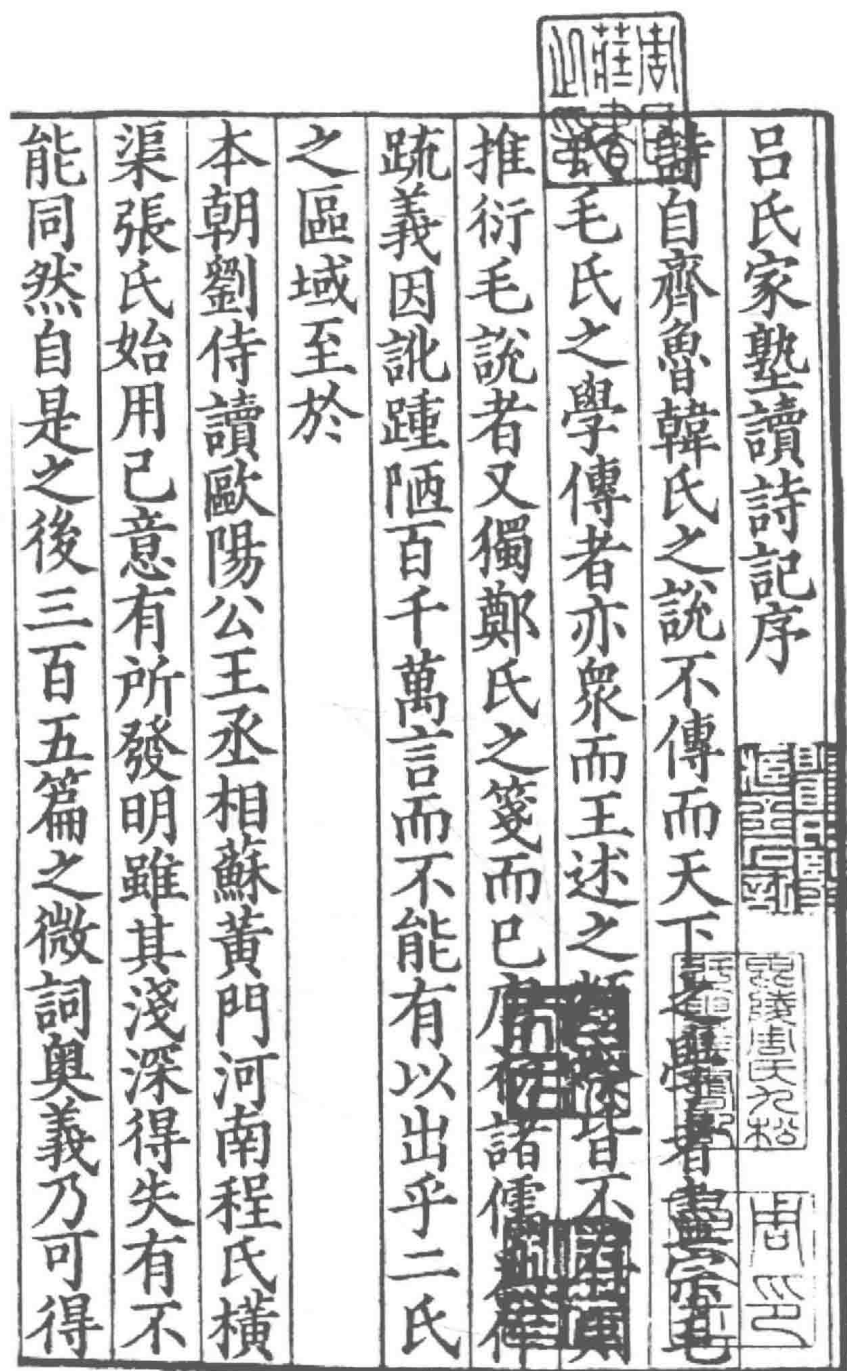 呂氏家塾讀詩記序
詩自齊魯韓氏之說不傳而天下之學者盡宗毛
氏毛氏之學傳者亦衆而王述之類今皆不存則
推衍毛說者又獨鄭氏之箋而已唐初諸儒爲作
疏義因訛踵陋百千萬言而不能有以出乎二氏
之區域至於
本朝劉侍讀歐陽公王丞相蘇黃門河南程氏橫
渠張氏始用己意有所發明雖其淺深得失有不
能同然自是之後三百五篇之微詞奧義乃可得
毘陵周氏九松
迂叟藏書記